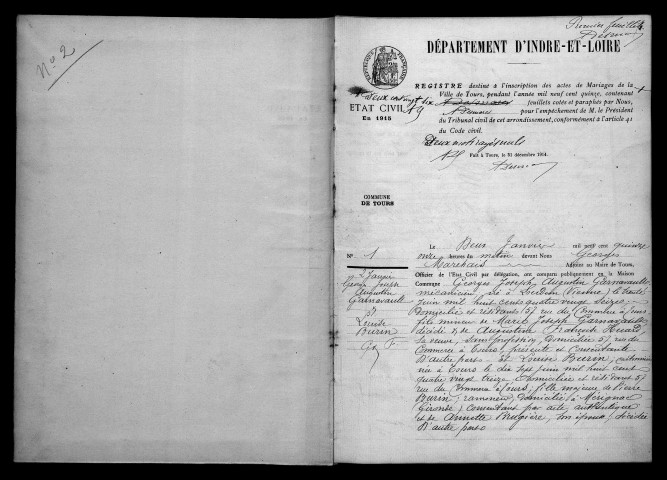 Nº 2
Premier feuillet
DÉPARTEMENT D'INDRE-ET-LOIRE
REGISTRE destiné à l'inscription des actes de Mariages de la
Ville de Tours, pendant l'année mil neuf cent quinze, contenant
deux cent vingt dix feuillets cotés et paraphés par Nous,
pour l'empêchement de M. le Président
du Tribunal civil de cet arrondissement, conformément à l'article 41
du Code civil.
ETAT CIVIL
En 1915
Deux mots rayés nuls
Fait à Tours, le 31 décembre 1914.
COMMUNE
DE TOURS
Le Deux Janvier mil neuf cent quinze
Nº 1
onze heures du matin devant Nous Georges
Marchais Adjoint au Maire de Tours,
2 Janvier
Georges Joseph
Augustin
Garnavault
et
Louise
Burin
Officier de l'Etat Civil par délégation, ont comparu publiquement en la Maison
Commune Georges Joseph Augustin Garnavault
mécanicien né à (Vienne) le huit
juin mil huit cent quatre vingt seize,
domicilié et résidant 57 rue du Commerce à Tours
fils mineur de Marie Joseph Garnavault
décédé et de Augustine Françoise Huard
sa veuve, sans profession, domiciliée 57 rue du
Commerce à Tours, présente et consentante
D'autre part et Louise Burin, culottière
née à Tours le dix sept juin mil huit cent
quatre vingt treize domiciliée et résidant 57
rue du Commerce à Tours, fille majeure de Pierre
Burin, ramoneur, domicilié à Mérignac
(Gironde) consentant par acte authentique
et de Annette Brugière, son épouse, décédée
D'autre part